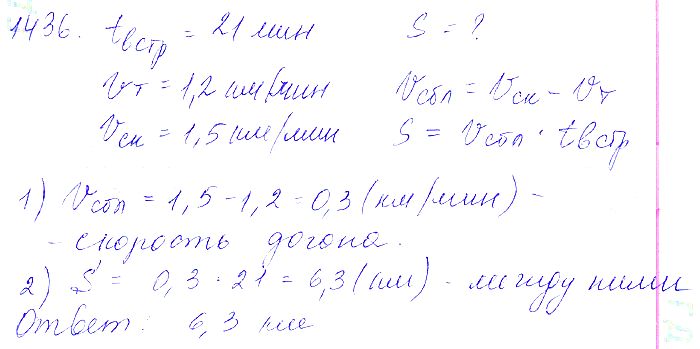 1436. tвстр = 21 мин S = ?
Vт = 1,2 км/мин Vсбл = Vск - Vт
Vск = 1,5 км/мин S = Vсбл · tвстр
1) Vсбл = 1,5 - 1,2 = 0,3 (км/мин) -
- скорость догона.
2) S = 0,3 · 21 = 6,3 (км) - между ними
Ответ: 6,3 км